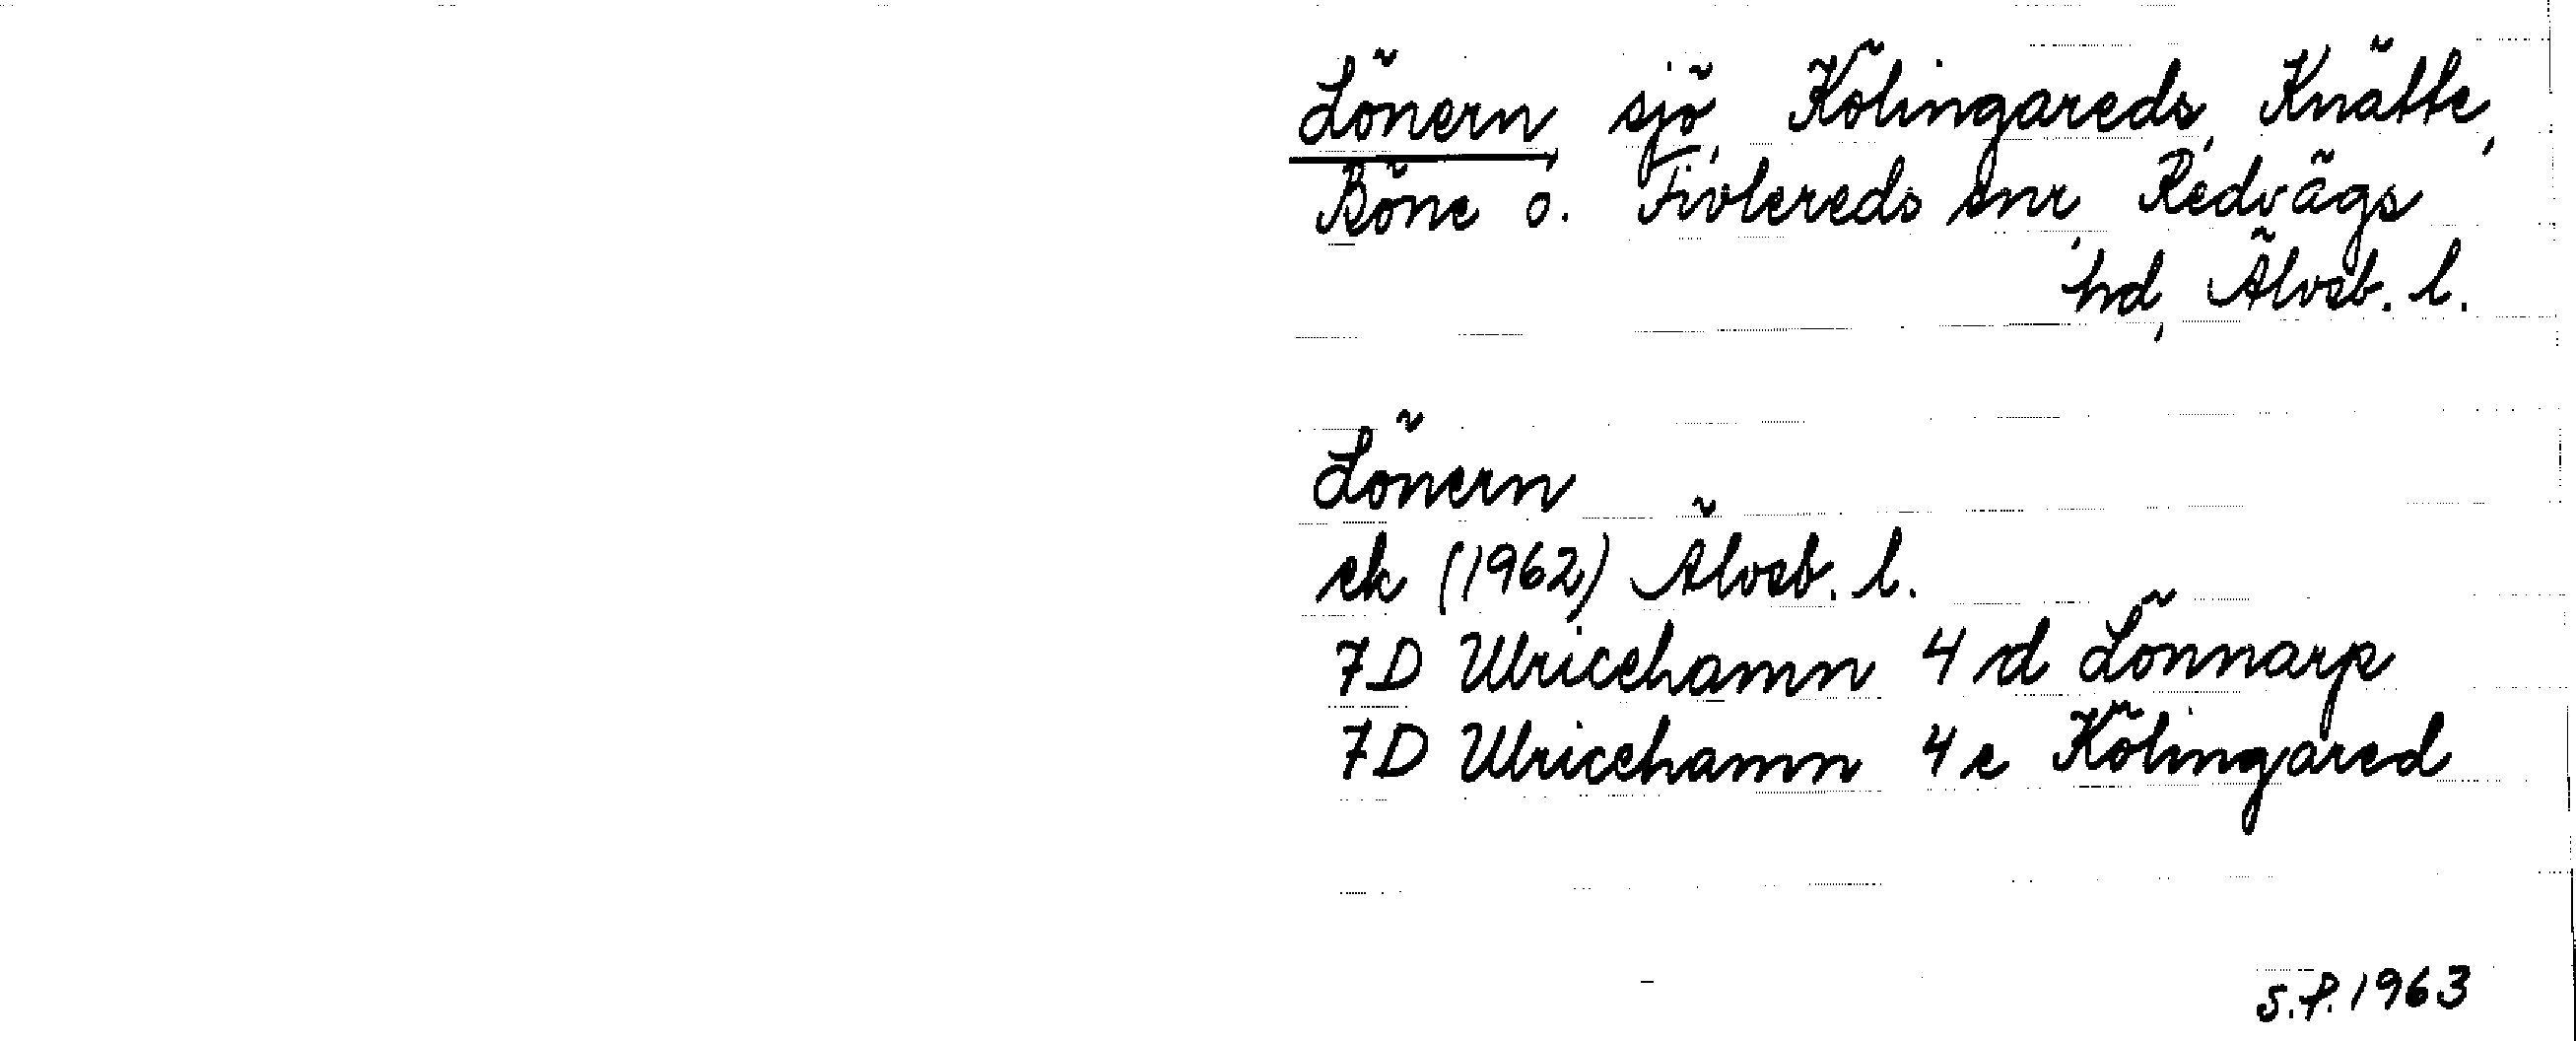 Lönern, sjö, Kölingareds, Knätte,
Böne o. Fivlereds snr, Redvägs
hd, Älvsb. l.
Lönern
ek (1962) Älvsb. l.
7D Ulricehamn 4 d Lönnarp
7D Ulricehamn 4 e Kölingared
S.P. 1963